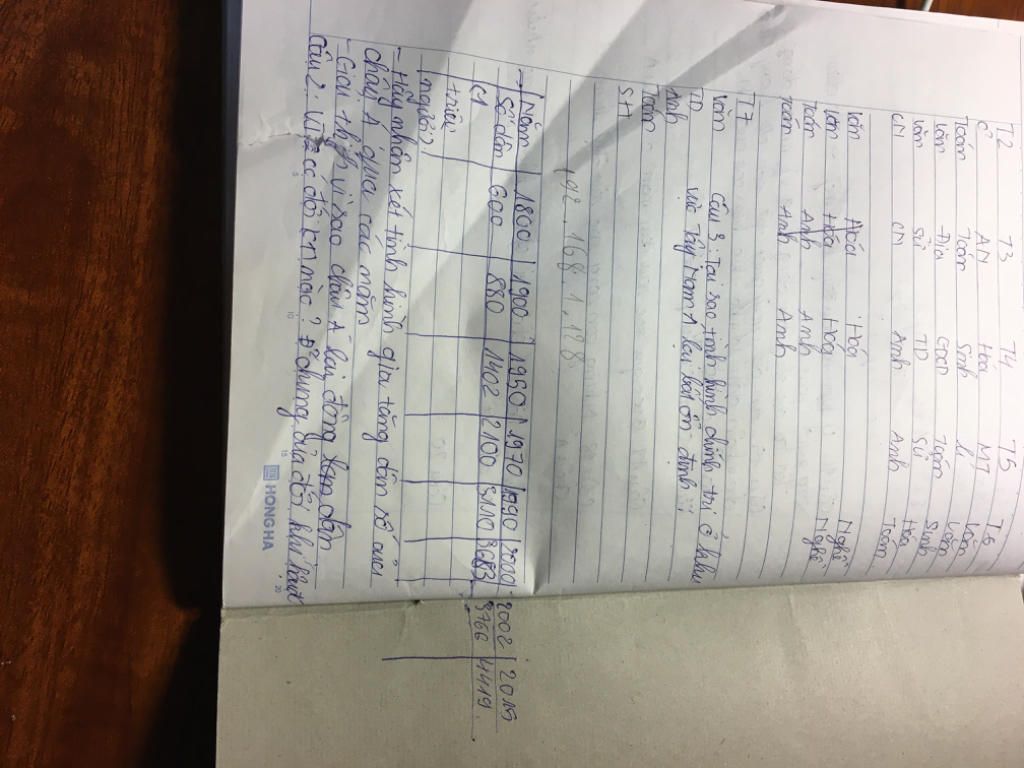 T2 T3 T4 T5 T6
C AN Hoá MT Văn
Toán Toán Sinh Lí Văn
Văn Địa GDCD Toán Sinh
Văn Sử TD Sử Hóa
CN CN Anh Anh Toán
Văn Hoá Hoá Nghề
Văn Hóa Hoá Nghề
Toán Anh Anh
Toán Anh Anh
T7
Văn Câu 3: Tại sao tình hình chính trị ở khu
TD vực Tây Nam Á lại bất ổn định
Anh
Toán
SH
192.168.1.128
Năm 1800 1900 1950 1970 1990 2000 2002 2019
Số dân 600 880 1402 2100 3110 3683 3766 4419
(1
triệu
người)
- Hãy nhận xét tình hình gia tăng dân số của
châu Á qua các năm
- Giải thích vì sao châu Á lại đông dân
Câu 2: khí hậu
HONG HA
5 10 15 20